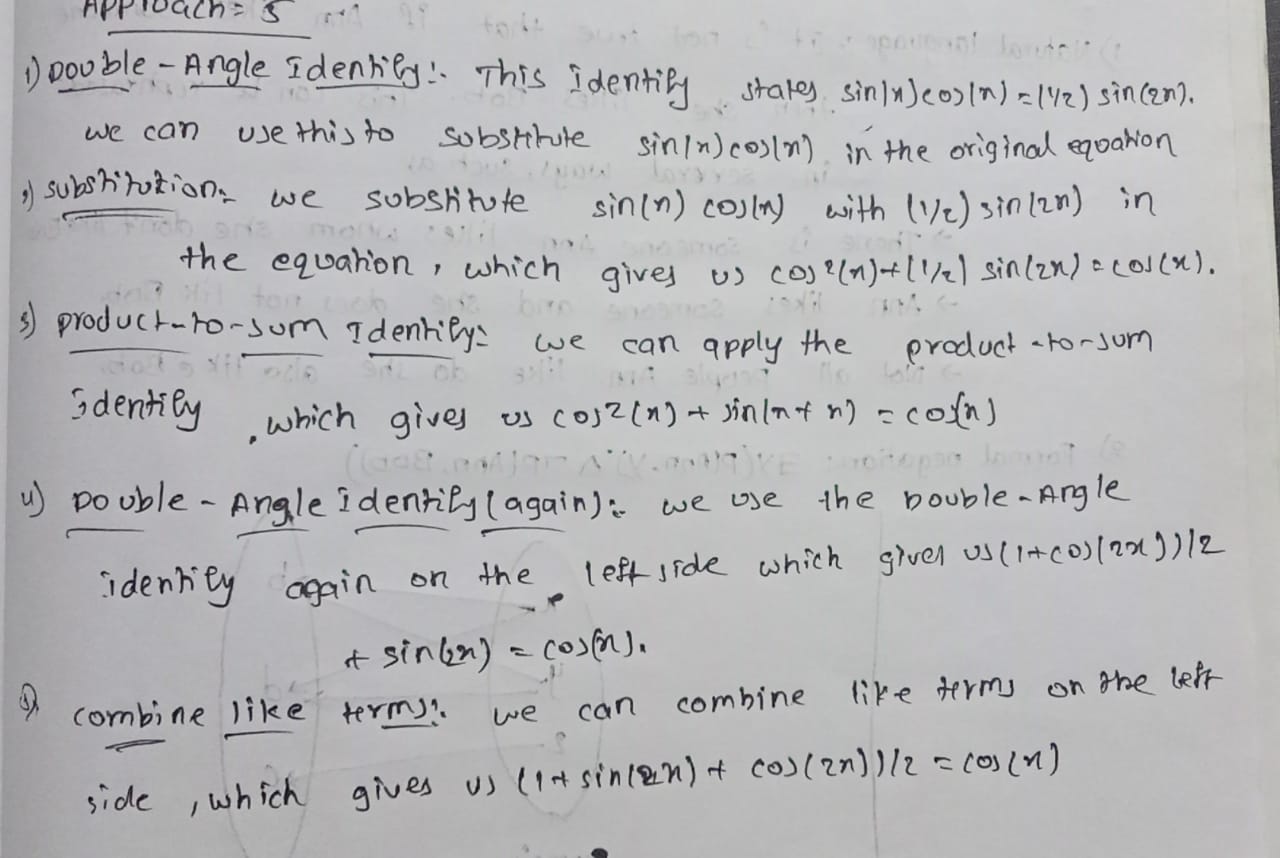 Approach = 5
1) Double - Angle Identity :- This identity states sin(x)cos(x) = (1/2) sin(2x).
we can use this to substitute sin(x)cos(x) in the original equation
2) substitution :- we substitute sin(x) cos(x) with (1/2) sin(2x) in
the equation, which gives us cos²(x)+(1/2) sin(2x) = cos(x).
3) product-to-sum Identity :- we can apply the product-to-sum
identity, which gives us cos2(x) + sin(x+x) = cos(x)
4) Double - Angle identity (again) :- we use the Double-Angle
identity again on the left side which gives us (1+cos(2x))/2
+ sin(2x) = cos(x).
5) combine like terms :- we can combine like terms on the left
side, which gives us (1+ sin(2x) + cos(2x))/2 = cos(x)